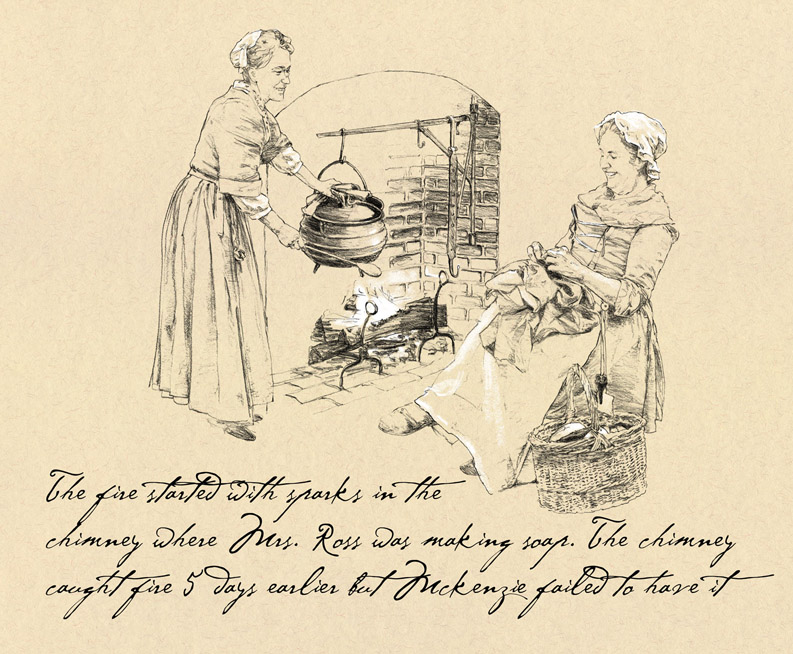 The fire started with sparks in the
chimney where Mrs. Ross was making soap. The chimney
caught fire 5 days earlier but Mckenzie failed to have it